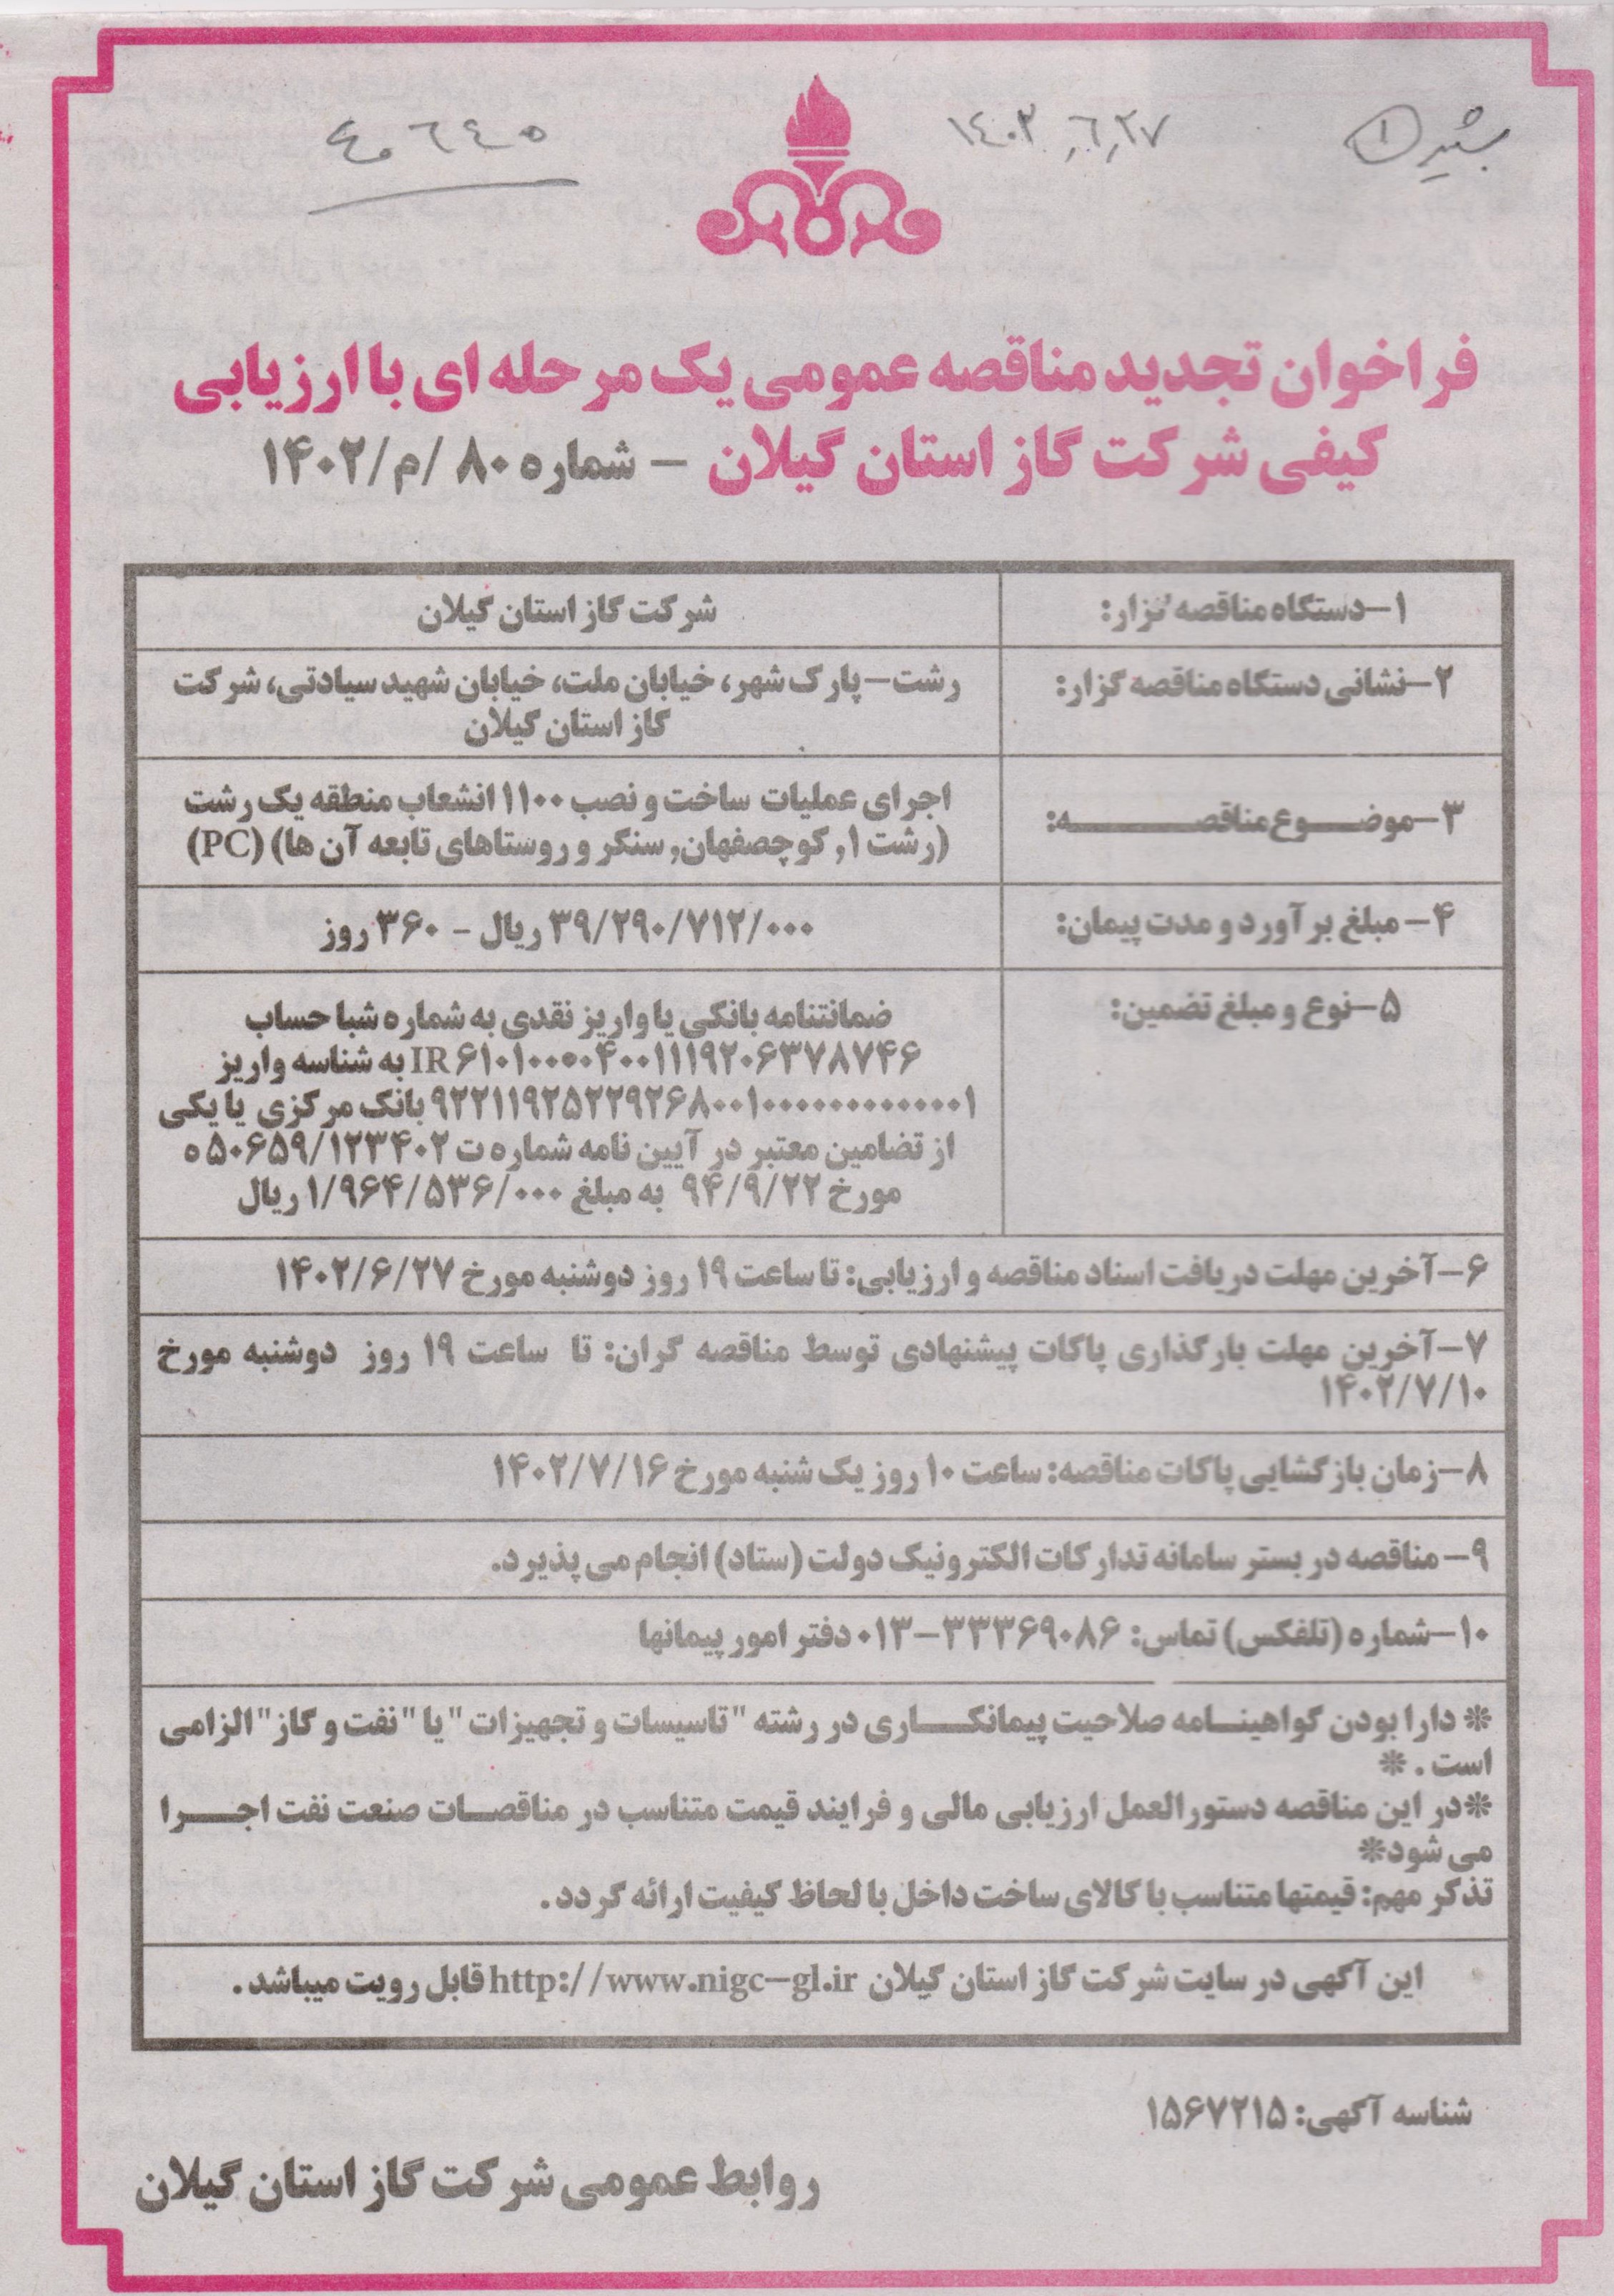 ۱۴۰۲,۶,۲۷
۴۰۶۴۵
فراخوان تجدید مناقصه عمومی یک مرحله ای با ارزیابی
کیفی شرکت گاز استان گیلان – شماره ۸۰ /م/۱۴۰۲
۱–دستگاه مناقصه گزار: شرکت گاز استان گیلان
۲–نشانی دستگاه مناقصه گزار: رشت– پارک شهر، خیابان ملت، خیابان شهید سیادتی، شرکت
گاز استان گیلان
۳–موضـــوع مناقصـــــــــه: اجرای عملیات ساخت و نصب ۱۱۰۰ انشعاب منطقه یک رشت
(رشت ۱, کوچصفهان, سنگر و روستاهای تابعه آن ها) (PC)
۴– مبلغ برآورد و مدت پیمان: ۳۹/۲۹۰/۷۱۲/۰۰۰ ریال – ۳۶۰ روز
۵–نوع و مبلغ تضمین: ضمانتنامه بانکی یا واریز نقدی به شماره شبا حساب
IR ۶۱۰۱۰۰۰۰۴۰۰۱۱۱۹۲۰۶۳۷۸۷۴۶ به شناسه واریز
۹۲۲۱۱۹۲۵۲۲۹۲۶۸۰۰۱۰۰۰۰۰۰۰۰۰۰۰۰۱ بانک مرکزی یا یکی
از تضامین معتبر در آیین نامه شماره ت ۱۲۳۴۰۲/۵۰۶۵۹ ه
مورخ ۹۴/۹/۲۲ به مبلغ ۱/۹۶۴/۵۳۶/۰۰۰ ریال
۶–آخرین مهلت دریافت اسناد مناقصه و ارزیابی: تا ساعت ۱۹ روز دوشنبه مورخ ۱۴۰۲/۶/۲۷
۷–آخرین مهلت بارگذاری پاکات پیشنهادی توسط مناقصه گران: تا ساعت ۱۹ روز دوشنبه مورخ
۱۴۰۲/۷/۱۰
۸–زمان بازگشایی پاکات مناقصه: ساعت ۱۰ روز یک شنبه مورخ ۱۴۰۲/۷/۱۶
۹– مناقصه در بستر سامانه تدارکات الکترونیک دولت (ستاد) انجام می پذیرد.
۱۰–شماره (تلفکس) تماس: ۳۳۳۶۹۰۸۶–۰۱۳ دفتر امور پیمانها
* دارا بودن گواهینـــامه صلاحیت پیمانکـــــاری در رشته "تاسیسات و تجهیزات" یا "نفت و گاز" الزامی
است . *
*در این مناقصه دستورالعمل ارزیابی مالی و فرایند قیمت متناسب در مناقصـــات صنعت نفت اجـــرا
می شود*
تذکر مهم: قیمتها متناسب با کالای ساخت داخل با لحاظ کیفیت ارائه گردد .
این آگهی در سایت شرکت گاز استان گیلان http://www.nigc–gl.ir قابل رویت میباشد .
شناسه آگهی: ۱۵۶۷۲۱۵
روابط عمومی شرکت گاز استان گیلان